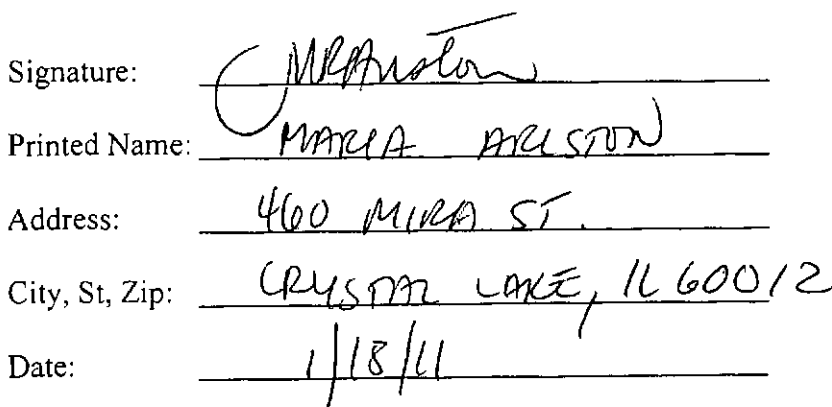 Signature: MRAriston
Printed Name: MARIA ARISTON
Address: 460 MIRA ST.
City, St, Zip: CRYSTAL LAKE, IL 60012
Date: 1/18/11